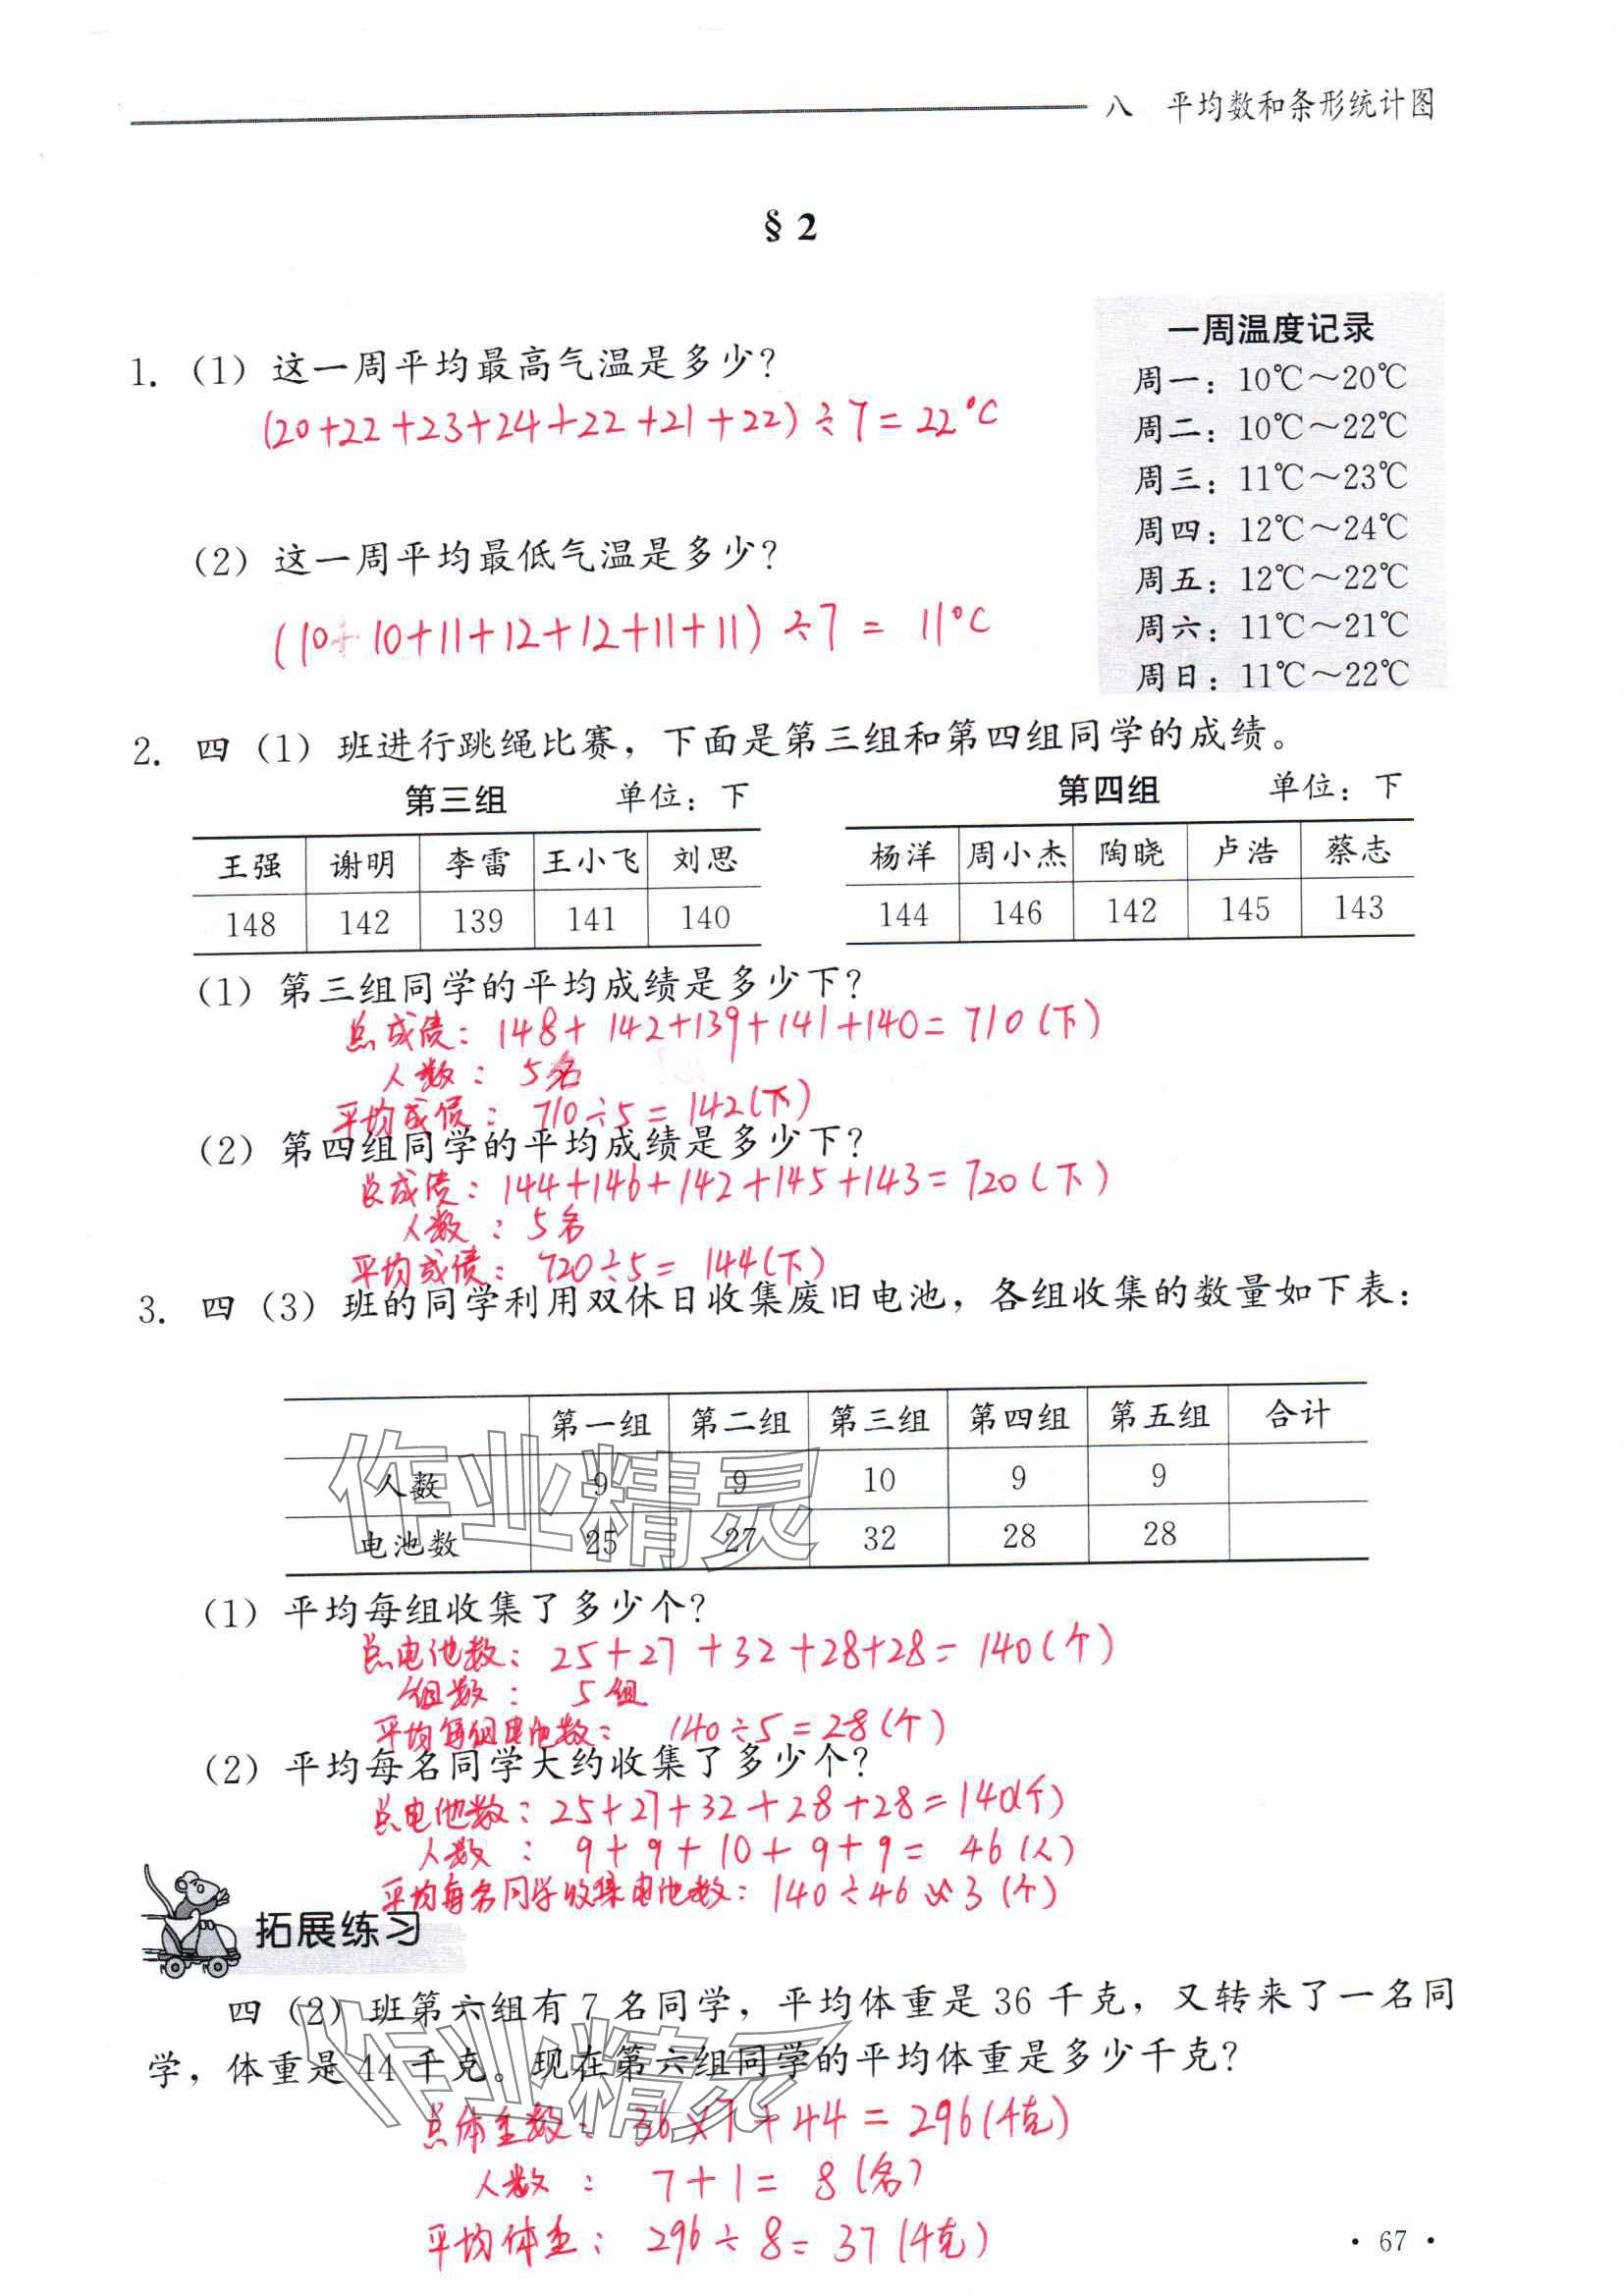 八 平均数和条形统计图
§ 2
1. (1) 这一周平均最高气温是多少?
(20+22+23+24+22+21+22)÷7=22℃
(2) 这一周平均最低气温是多少?
(10+10+11+12+12+11+11)÷7= 11℃
一周温度记录
周一: 10℃～20℃
周二: 10℃～22℃
周三: 11℃～23℃
周四: 12℃～24℃
周五: 12℃～22℃
周六: 11℃～21℃
周日: 11℃～22℃
2. 四(1)班进行跳绳比赛，下面是第三组和第四组同学的成绩。
第三组 单位: 下
王强 谢明 李雷 王小飞 刘思
148 142 139 141 140
第四组 单位: 下
杨洋 周小杰 陶晓 卢浩 蔡志
144 146 142 145 143
(1) 第三组同学的平均成绩是多少下?
总成绩: 148+142+139+141+140=710(下)
人数: 5名
平均成绩: 710÷5=142(下)
(2) 第四组同学的平均成绩是多少下?
总成绩: 144+146+142+145+143=720(下)
人数: 5名
平均成绩: 720÷5= 144(下)
3. 四(3)班的同学利用双休日收集废旧电池，各组收集的数量如下表:
第一组 第二组 第三组 第四组 第五组 合计
人数 9 9 10 9 9
电池数 25 27 32 28 28
作业精灵
(1) 平均每组收集了多少个?
总电池数: 25+27+32+28+28=140(个)
组数: 5组
平均每组电池数: 140÷5=28(个)
(2) 平均每名同学大约收集了多少个?
总电池数: 25+27+32+28+28=140(个)
人数: 9+9+10+9+9= 46(人)
平均每名同学收集电池数: 140÷46≈3(个)
拓展练习
四(2)班第六组有7名同学，平均体重是36千克，又转来了一名同
学，体重是44千克。现在第六组同学的平均体重是多少千克?
作业精灵
总体重数: 36×7+44=296(千克)
人数: 7+1= 8(名)
平均体重: 296÷8=37(千克)
· 67 ·